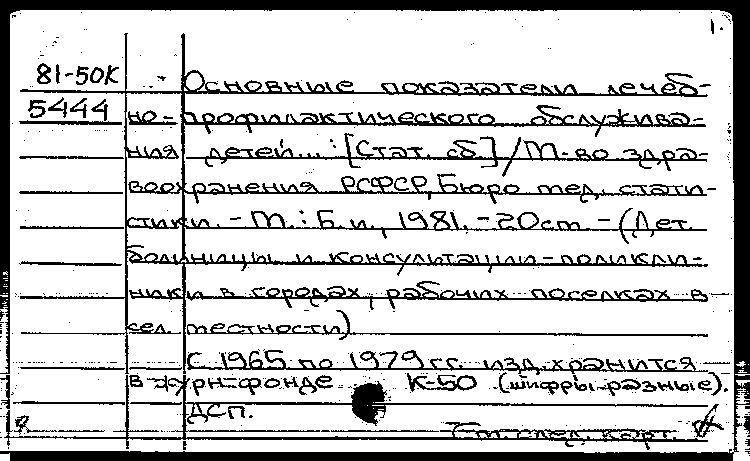 1.
81-50К Основные показатели лечеб-
5444 но-профилактического обслужива-
ния детей... : [Стат. сб.] / М-во здра-
воохранения РСФСР, Бюро мед. стати-
стики. - М. : Б. и., 1981. - 20см. - (Дет.
больницы и консультации-поликли-
ники в городах, рабочих поселках и
сел. местности).
С 1965 по 1979 гг. изд. хранится
в журн-фонде К-50 (шифры разные).
ДСП.
См. след. карт.